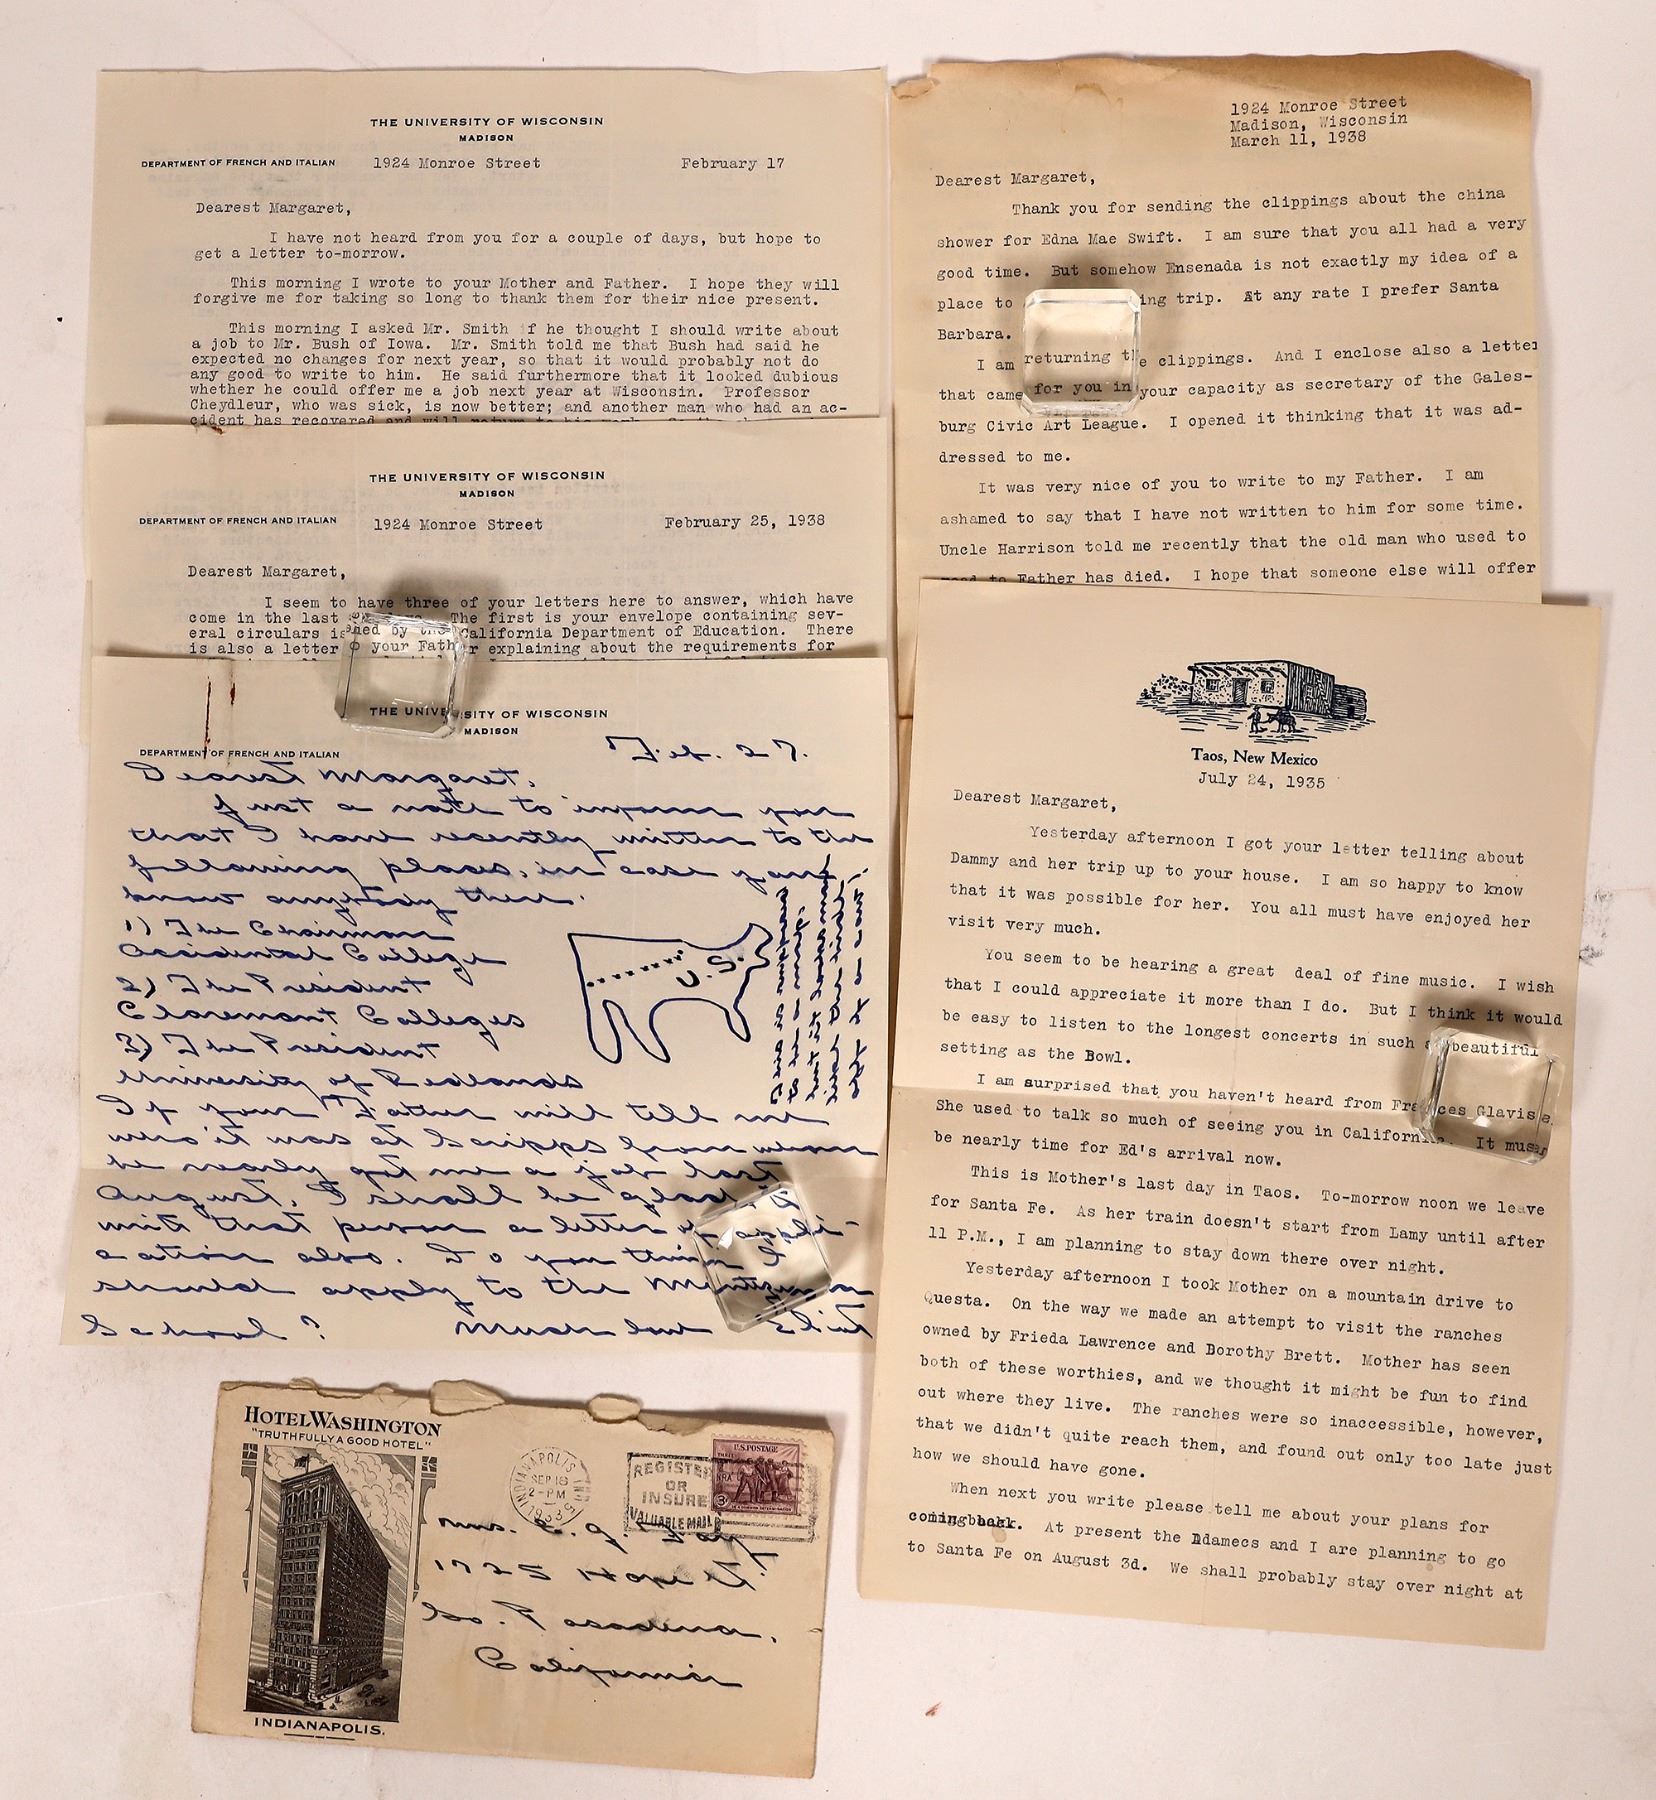 THE UNIVERSITY OF WISCONSIN
MADISON
DEPARTMENT OF FRENCH AND ITALIAN
1924 Monroe Street
February 17
Dearest Margaret,
I have not heard from you for a couple of days, but hope to
get a letter to-morrow.
This morning I wrote to your Mother and Father. I hope they will
forgive me for taking so long to thank them for their nice present.
This morning I asked Mr. Smith if he thought I should write about
a job to Mr. Bush of Iowa. Mr. Smith told me that Bush had said he
expected no changes for next year, so that it would probably not do
any good to write to him. He said furthermore that it looked dubious
whether he could offer me a job next year at Wisconsin. Professor
Cheydleur, who was sick, is now better; and another man who had an ac-
cident has recovered and will return to his work.
THE UNIVERSITY OF WISCONSIN
MADISON
DEPARTMENT OF FRENCH AND ITALIAN
1924 Monroe Street
February 25, 1938
Dearest Margaret,
I seem to have three of your letters here to answer, which have
come in the last The first is your envelope containing sev-
eral circulars is ned by the California Department of Education. There
is also a letter o your Father explaining about the requirements for
THE UNIVERSITY OF WISCONSIN
MADISON
DEPARTMENT OF FRENCH AND ITALIAN
Feb. 27.
Dearest Margaret,
Just a note to inform you
that I have recently written to the
following places, in case you
know anybody there.
1) The Chairman
Occidental College
2) The President
Claremont Colleges
3) The President
University of Redlands
U.S.
If your Father will tell me
who it was at Scripps from whom
he nearly got me a job last
August, I shall be glad to
write that person a letter of appli-
cation also. Do you think I
should apply to the
School? Much love Eliot
HOTEL WASHINGTON
"TRUTHFULLY A GOOD HOTEL"
INDIANAPOLIS.
INDIANAPOLIS IND
SEP 18
2-PM
1933
REGISTER
OR
INSURE
VALUABLE MAIL
U.S. POSTAGE
THREE
NRA
3¢
Mrs. E. G. Fay
1725 Hope St.
So. Pasadena,
California
1924 Monroe Street
Madison, Wisconsin
March 11, 1938
Dearest Margaret,
Thank you for sending the clippings about the china
shower for Edna Mae Swift. I am sure that you all had a very
good time. But somehow Ensenada is not exactly my idea of a
place to ing trip. At any rate I prefer Santa
Barbara.
I am returning the clippings. And I enclose also a letter
that came for you in your capacity as secretary of the Gales-
burg Civic Art League. I opened it thinking that it was ad-
dressed to me.
It was very nice of you to write to my Father. I am
ashamed to say that I have not written to him for some time.
Uncle Harrison told me recently that the old man who used to
read to Father has died. I hope that someone else will offer
Taos, New Mexico
July 24, 1935
Dearest Margaret,
Yesterday afternoon I got your letter telling about
Dammy and her trip up to your house. I am so happy to know
that it was possible for her. You all must have enjoyed her
visit very much.
You seem to be hearing a great deal of fine music. I wish
that I could appreciate it more than I do. But I think it would
be easy to listen to the longest concerts in such a beautiful
setting as the Bowl.
I am surprised that you haven't heard from Frances Glavis
She used to talk so much of seeing you in California. It must
be nearly time for Ed's arrival now.
This is Mother's last day in Taos. To-morrow noon we leave
for Santa Fe. As her train doesn't start from Lamy until after
11 P.M., I am planning to stay down there over night.
Yesterday afternoon I took Mother on a mountain drive to
Questa. On the way we made an attempt to visit the ranches
owned by Frieda Lawrence and Dorothy Brett. Mother has seen
both of these worthies, and we thought it might be fun to find
out where they live. The ranches were so inaccessible, however,
that we didn't quite reach them, and found out only too late just
how we should have gone.
When next you write please tell me about your plans for
coming back. At present the Adamecs and I are planning to go
to Santa Fe on August 3d. We shall probably stay over night at